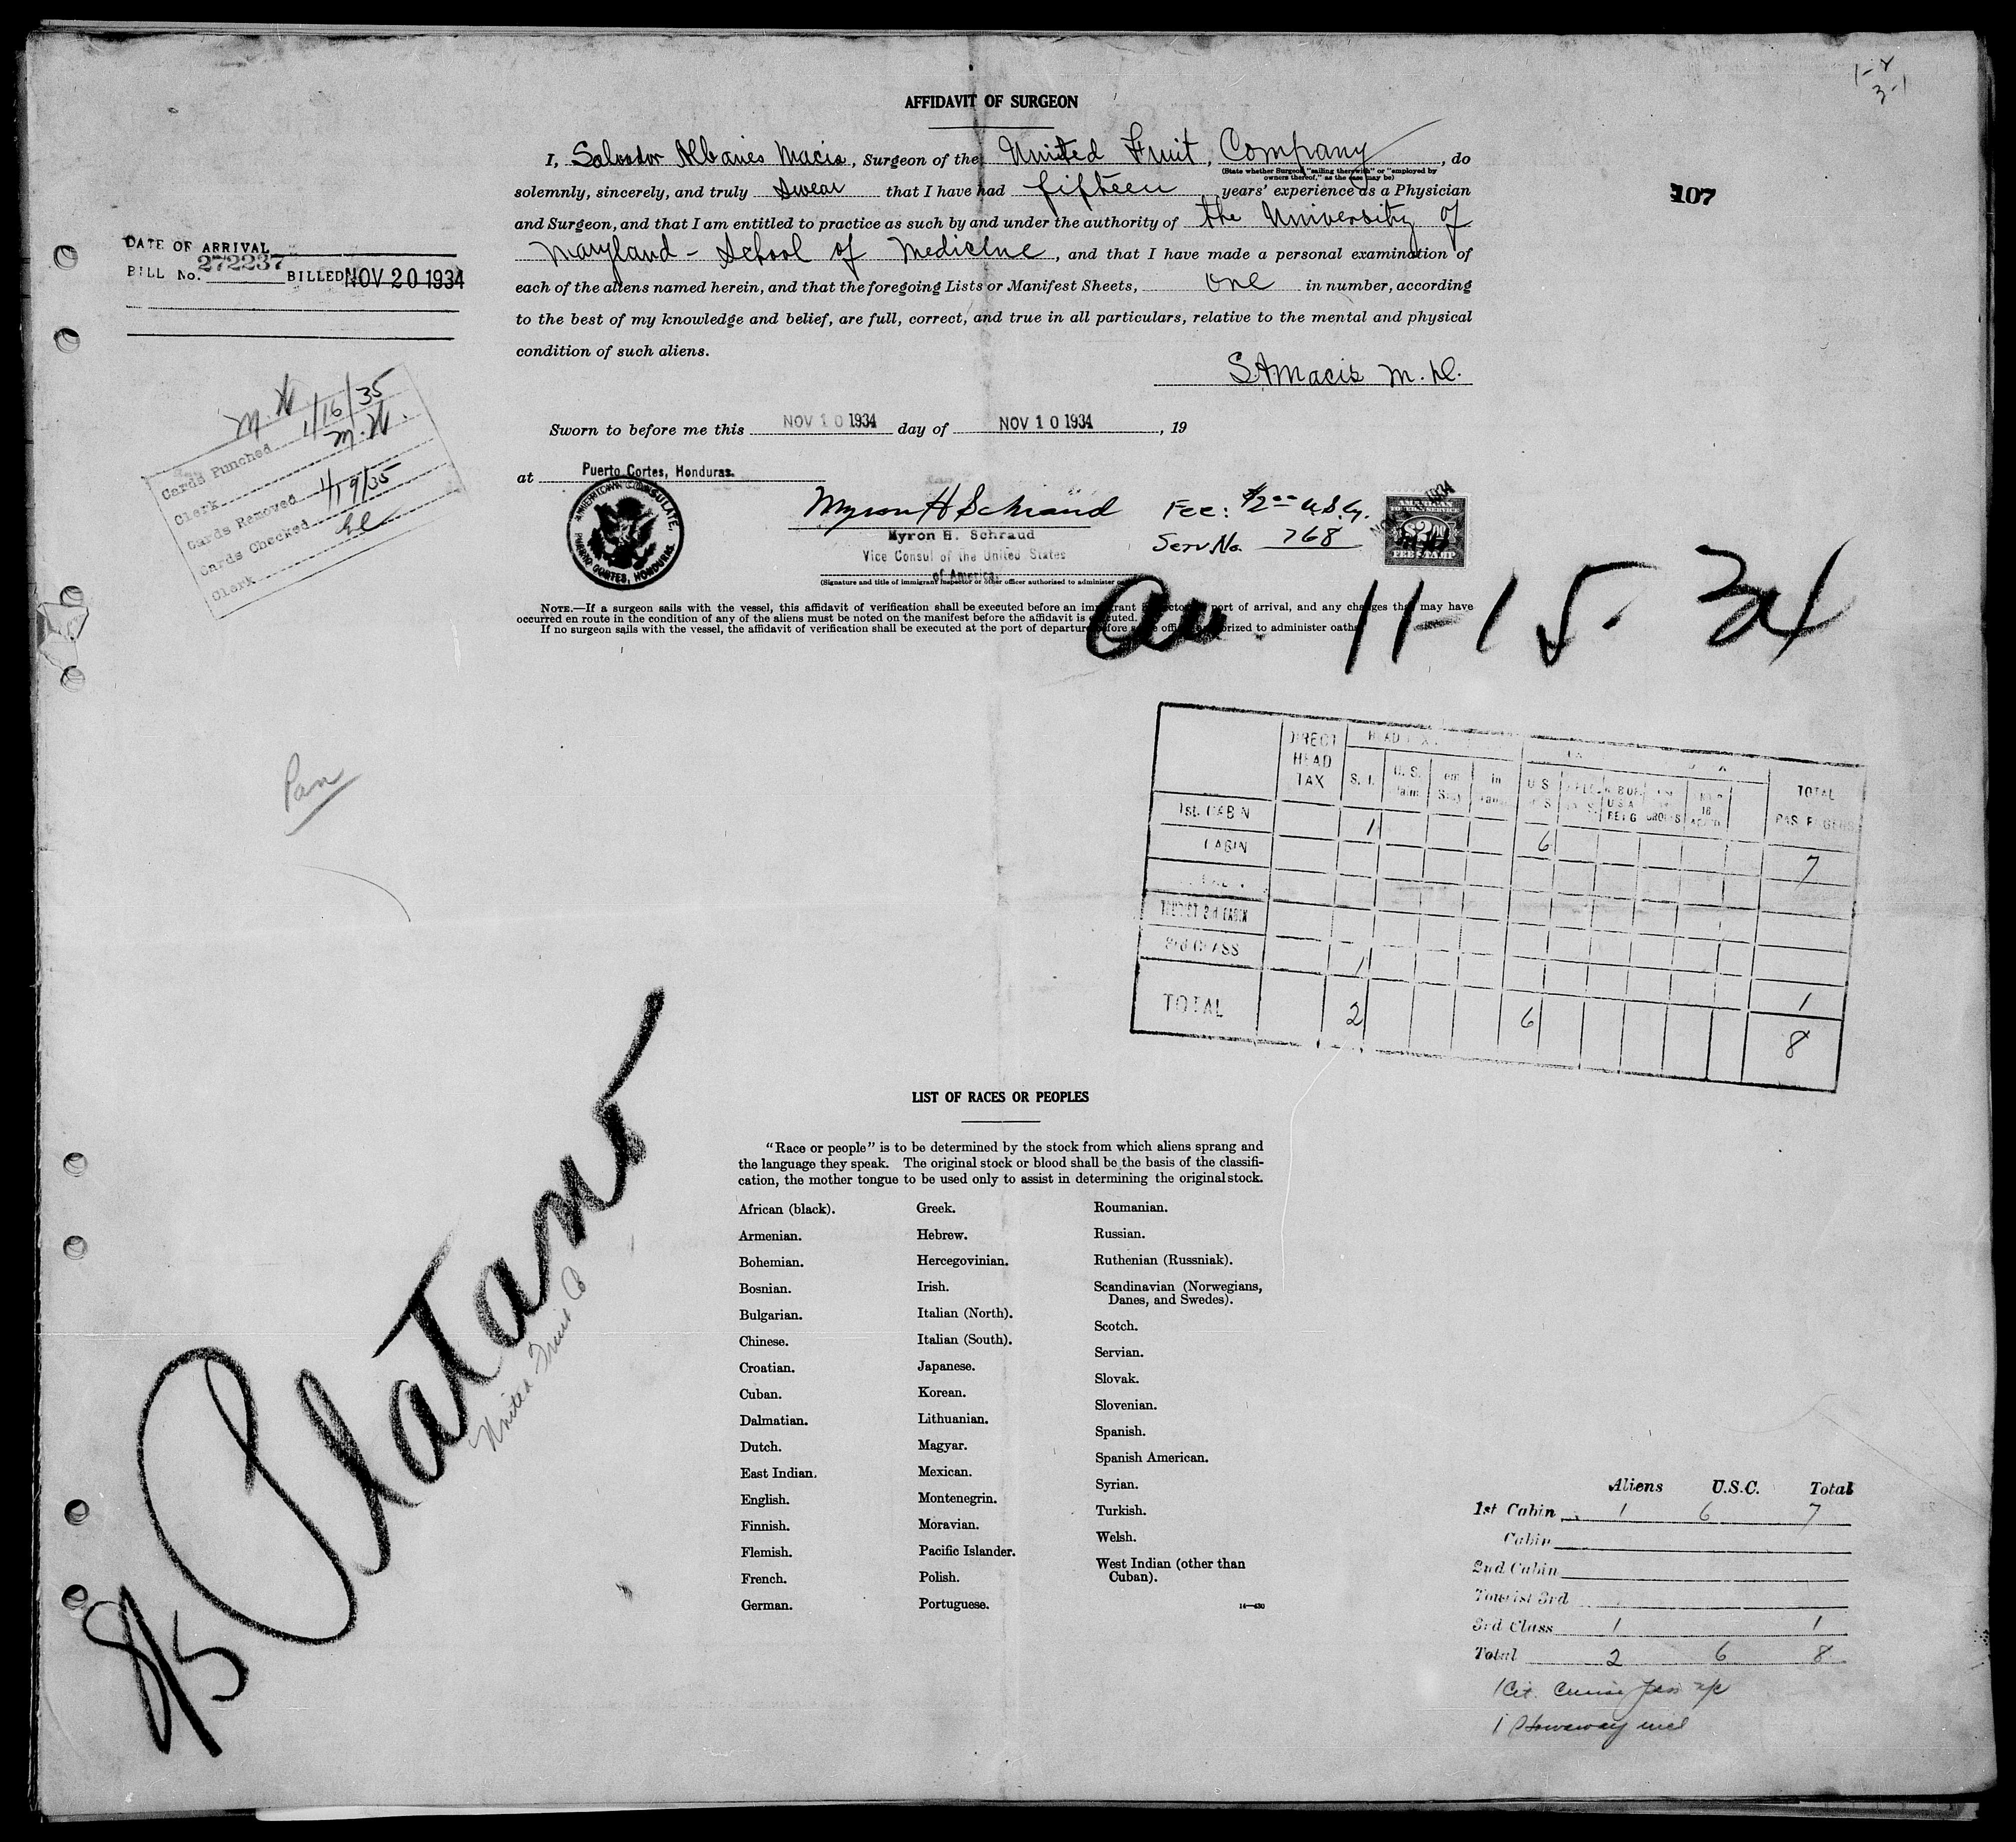 1-
3-1
AFFIDAVIT OF SURGEON
I, Salvador Albanes Macis, Surgeon of the United Fruit, Company, do
(State whether Surgeon "sailing therewith" or "employed by
owners thereof," as the case may be)
solemnly, sincerely, and truly swear that I have had fifteen years' experience as a Physician
107
and Surgeon, and that I am entitled to practice as such by and under the authority of the University of
Maryland - School of Medicine, and that I have made a personal examination of
each of the aliens named herein, and that the foregoing Lists or Manifest Sheets, One in number, according
to the best of my knowledge and belief, are full, correct, and true in all particulars, relative to the mental and physical
condition of such aliens.
DATE OF ARRIVAL
BILL No. 272237 BILLED NOV 20 1934
S.A.Macis M.D.
Sworn to before me this NOV 10 1934 day of NOV 10 1934, 19
at Puerto Cortes, Honduras.
AMERICAN CONSULATE,
PUERTO CORTES, HONDURAS.
Myron H Schraud
Myron H. Schraud
Vice Consul of the United States
of America.
(Signature and title of immigrant inspector or other officer authorized to administer
Fee: $2.00 U.S.G.
Serv. No. 768
AMERICAN
FOREIGN SERVICE
$2.00
FEE STAMP
M.W. 1/16/35
Cards Punched
M.W.
Clerk
Cards Removed 1/19/35
Cards Checked
Clerk
NOTE.—If a surgeon sails with the vessel, this affidavit of verification shall be executed before an immigrant inspector port of arrival, and any changes that may have
occurred en route in the condition of any of the aliens must be noted on the manifest before the affidavit is executed.
If no surgeon sails with the vessel, the affidavit of verification shall be executed at the port of departure before officer authorized to administer oaths
11-15-34
Pan
DIRECT HEAD TAX
HEAD TAX
S. I.
U. S.
U S
TOTAL
PASSENGERS
1st. CABIN 1 6 7
CABIN
TOURIST 3rd CABIN
3rd CLASS 1 1
TOTAL 2 6 8
Platano
United Fruit Co
8/5
LIST OF RACES OR PEOPLES
"Race or people" is to be determined by the stock from which aliens sprang and
the language they speak. The original stock or blood shall be the basis of the classifi-
cation, the mother tongue to be used only to assist in determining the original stock.
African (black).
Armenian.
Bohemian.
Bosnian.
Bulgarian.
Chinese.
Croatian.
Cuban.
Dalmatian.
Dutch.
East Indian.
English.
Finnish.
Flemish.
French.
German.
Greek.
Hebrew.
Hercegovinian.
Irish.
Italian (North).
Italian (South).
Japanese.
Korean.
Lithuanian.
Magyar.
Mexican.
Montenegrin.
Moravian.
Pacific Islander.
Polish.
Portuguese.
Roumanian.
Russian.
Ruthenian (Russniak).
Scandinavian (Norwegians,
Danes, and Swedes).
Scotch.
Servian.
Slovak.
Slovenian.
Spanish.
Spanish American.
Syrian.
Turkish.
Welsh.
West Indian (other than
Cuban).
14—430
Aliens U.S.C. Total
1st Cabin 1 6 7
Cabin
2nd Cabin
Tourist 3rd
3rd Class 1 1
Total 2 6 8
1 Cit. Cruise
1 Stowaway incl